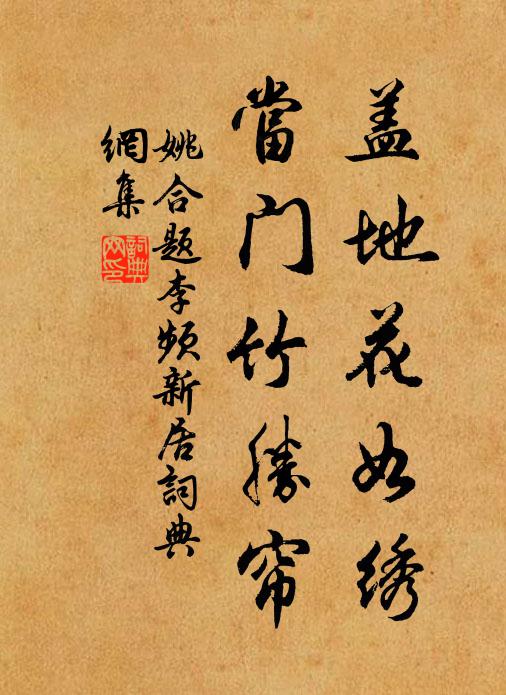 盖地花如绣
當门竹勝帘
姚合题李频新居詞典
網集
詞典
网印